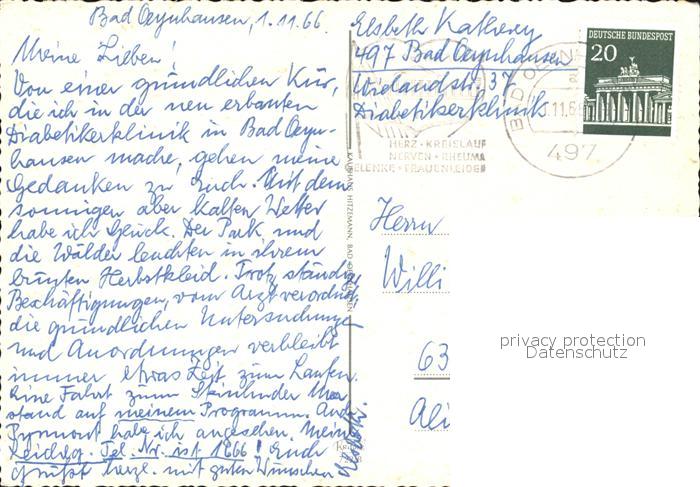 Bad Oeynhausen, 1.11.66.
Meine Lieben!
Von einer gründlichen Kur,
die ich in der neu erbauten
Diabetikerklinik in Bad Oeyn-
hausen mache, gehen meine
Gedanken zu Euch. Mit dem
sonnigen aber kalten Wetter
habe ich Glück. Der Park und
die Wälder leuchten in ihrem
bunten Herbstkleid. Trotz ständig
Beschäftigungen, vom Arzt verordnet,
die gründlichen Untersuchungen
und Anordnungen verbleibt
immer etwas Zeit zum Laufen.
Eine Fahrt zum Steinhuder Meer
stand auf meinem Programm. Auch
Pyrmont habe ich angesehen. Meine
Tel. Nr. ist 1666! Euch
grüßt herzl. mit guten Wünschen
Elsbeth
Elsbeth
497 Bad Oeynhausen
Wielandstr. 37
Diabetikerklinik
DEUTSCHE BUNDESPOST
20
11.6
497
HERZ · KREISLAUF
NERVEN · RHEUMA
GELENKE · FRAUENLEIDEN
KAUFHAUS HITZEMANN, BAD OEYNHAUSEN
Herrn
Willi
63
privacy protection
Datenschutz